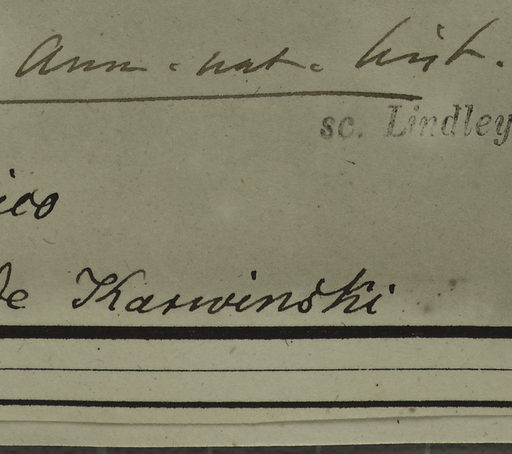 Ann. nat. hist.
sc. Lindley
ico
de Karwinski